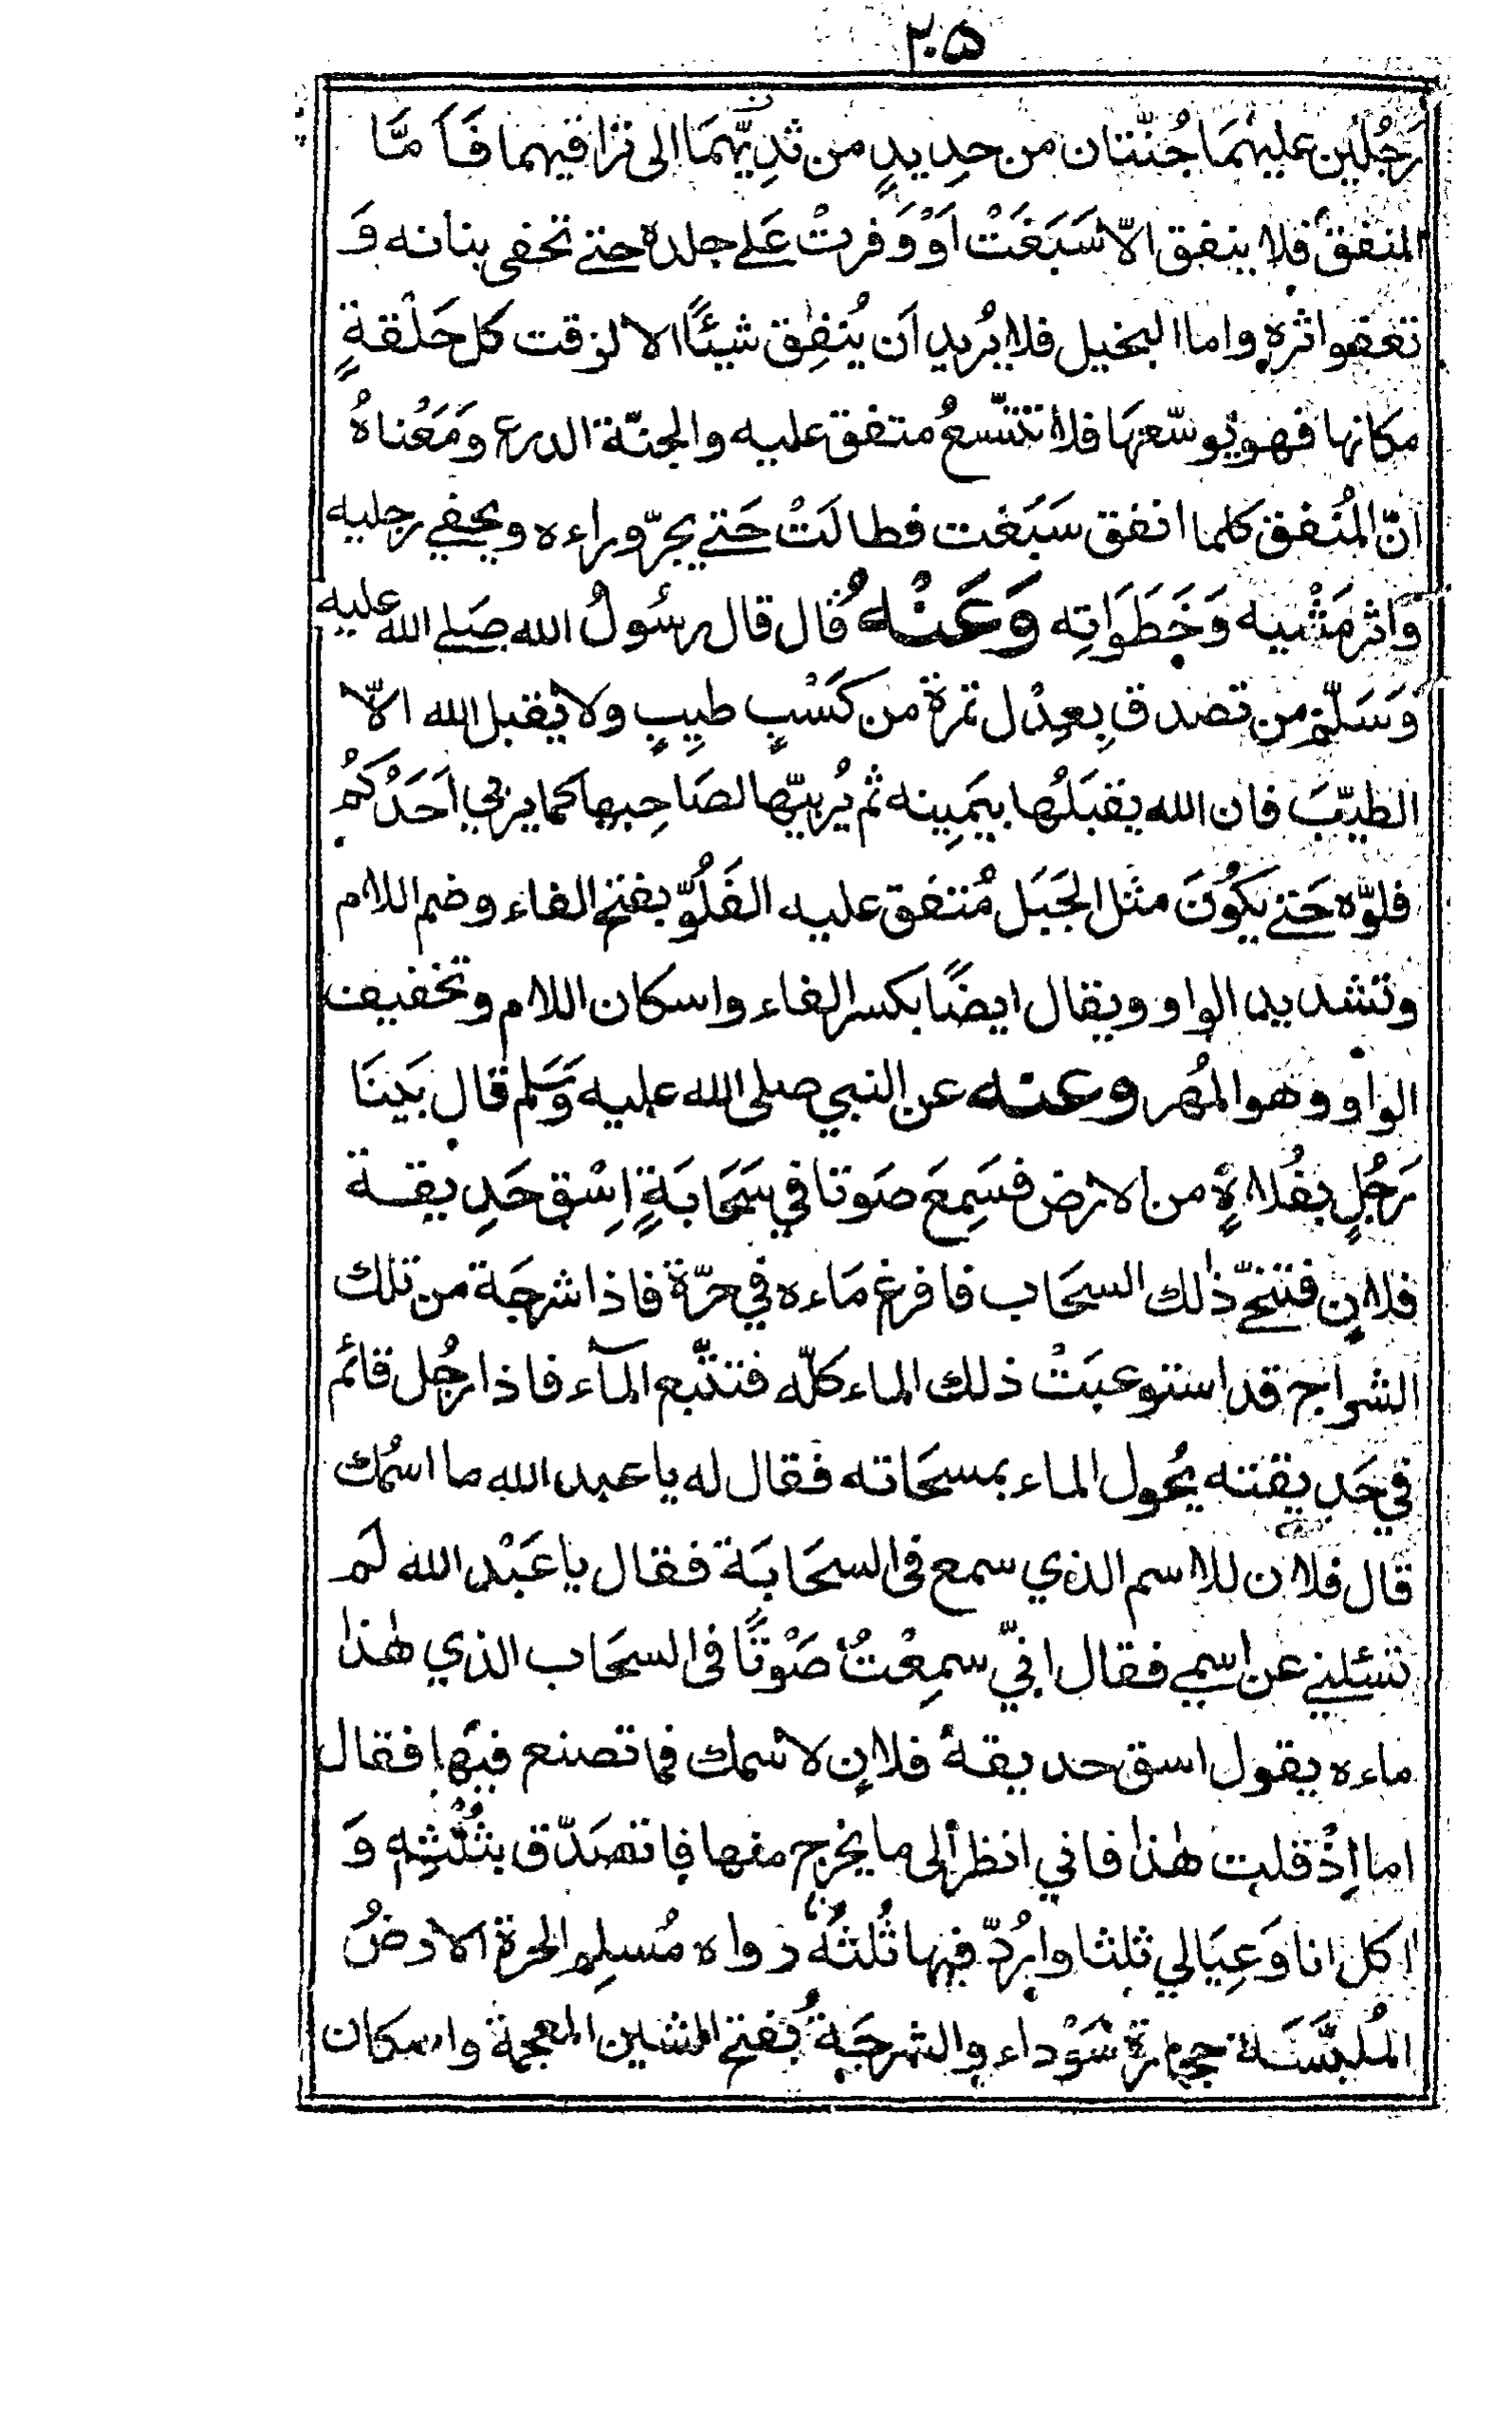 ٢٠٥
رَجُلَين عليهمَا جُنّتان من حدِيدٍ من ثدِيّهمَا الى تراقيهما فَاَمَّا
المنفقُ فلا ينفق الّا سَبَغَتْ اَوْ وَفرتْ عَلے جلده حتے تخفى بنانه وَ
تعفو اثره واما البخيل فلا يُريد اَن يُنفِق شيئًا الا لزقت كل حَلْقةٍ
مكانها فهو يُوسّعهَا فلا تتّسعُ متفق عليه والجنّة الدرع ومَعْناهُ
انّ المُنفق كلما انفق سَبَغت فطالَتْ حَتے يجرّ وراءه ويخفے رجليه
وَاثر مَشْيه وَخَطَوَاتِه وَعَنْهُ قال قال رسُولُ الله صَلے الله عليه
وَسَلّم من تصدق بِعِدْل تمرة من كَسْبٍ طيِبٍ ولا يَقبل الله الّا
الطيّبَ فان الله يقبَلُها بيَمِينه ثم يُربيّها لصَاحِبها كما يربي اَحَدُكمُ
فلوّه حَتے يَكُونَ مثل الجَبَل مُتفق عليه الفَلُوّ بفتح الفاء وضم اللام
وتشديد الواو ويقال ايضًا بكسر الفاء واسكان اللام وتخفيف
الواو وهو المُهر وعنه عن النبي صلى الله عليه وَسَلم قال بَينَا
رَجُلٍ بفُلاةٍ من الارض فسَمِعَ صَوتا في سَحَابَةٍ اِسْق حَدِيقة
فلانٍ فتنحّے ذٰلك السحَاب فافرغ مَاءه في حرّة فاذا شرجَة من تلك
الشراج قد استوعبَتْ ذلك الماء كلّه فتتّبع المآء فاذا رجُل قائم
في حَدِيقته يُحول الماء بمسحَاته فقال له يا عبد الله ما اسمُك
قال فلان للاسم الذي سمع فى السحَابَة فقال يا عَبْد الله لَم
تسئلنے عن اسمے فقال انيّ سمِعْتُ صَوْتًا فى السحَاب الذي هٰذا
ماءه يقول اسق حديقة فلانٍ لاسْمك فما تصنع فيهَا فقال
اما اِذْ قلت هٰذا فاني انظر اُلى ما يخرج منها فاتصَدّق بثُلُثِهٖ وَ
اكل انا وَعِيَالي ثلثا واَرُدّ فيها ثُلثَهُ رواه مُسلِم الحرة الارضُ
المُلبَّسَة حجارة سَوْداء والشرجَة بُفتح الشين المعجمة واسكان